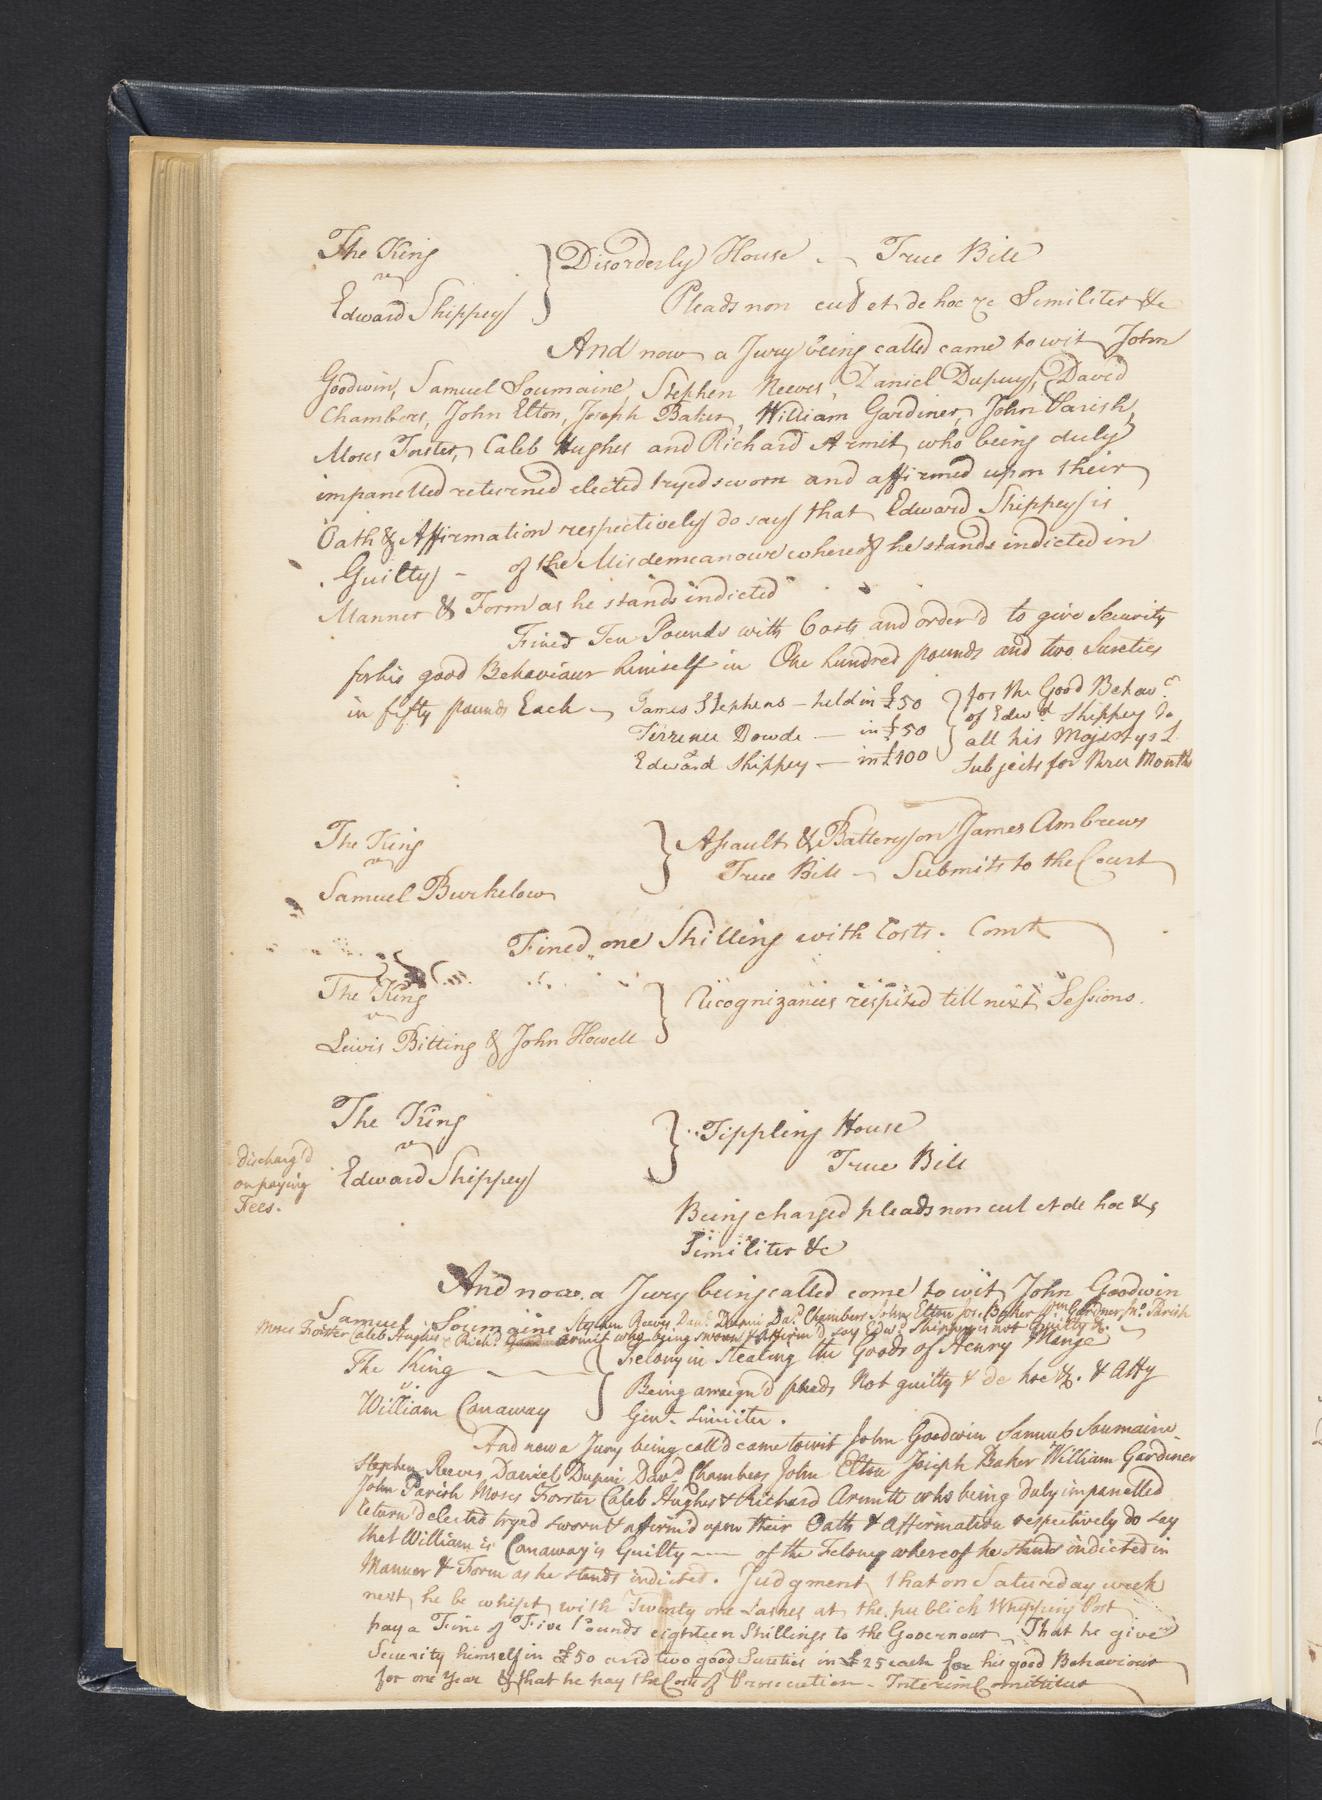 The King
vs
Edward Shippey } Disorderly House - True Bill
Pleads non cul et de hoc &c Similiter &c
And now a Jury being called came to wit John
Goodwin, Samuel Soumaine, Stephen Reeves, Daniel Dupuy, David
Chambers, John Elton, Joseph Baker, William Gardiner, John Parish,
Moses Forster, Caleb Hughes and Richard Armit, who being duly
impanelled returned elected tryed sworn and affirmed upon their
Oath & Affirmation respectively do say that Edward Shippey is
Guilty - of the Misdemeanour whereof he stands indicted in
Manner & Form as he stands indicted
Fined Ten Pounds with Costs and order'd to give Security
for his good Behaviour himself in One hundred pounds and two Sureties
in fifty pounds Each -
James Stephens - held in £50
Terrence Dowde - in £50
Edward Shippey - in £100
} for the Good Behavr.
of Edwd. Shippey to
all his Majestys L
Subjects for three Months
The King
v
Samuel Burkelow } Assault & Battery on James Ambrews
True Bill - Submits to the Court
Fined one Shilling with Costs. Comt
The King
v
Lewis Bitting & John Howell } Recognizances respited till next Sessions.
discharg'd
on paying
Fees.
The King
vs
Edward Shippey } Tippling House
True Bill
Being charged pleads non cul et de hoc &c
Similiter &c
And now a Jury being called come to wit John Goodwin
Samuel Soumaine Stephen Reeves Danl. Dupui Davd. Chambers John Elton Jos. Baker Wm. Gardner Jno. Parish
Moses Forster Caleb Hughes & Richd. Armit who being sworn & Affirm'd say Edwd. Shippey is not Guilty &c.
The King
v.
William Canaway } Felony in Stealing the Goods of Henry Menge
Being arraign'd pleads Not guilty & de hoc &c. & Atty
Genl. Similiter.
And now a Jury being call'd came to wit John Goodwin Samuel Soumaine
Stephen Reeves Daniel Dupui Davd. Chambers John Elton Joseph Baker William Gardiner
John Parish Moses Forster Caleb Hughes & Richard Armitt who being duly impanelled
return'd elected tryed sworn & affirm'd upon their Oath & Affirmation respectively do say
that William is Canaway is Guilty - of the Felony whereof he stands indicted in
Manner & Form as he stands indicted. Judgment that on Saturday week
next he be whipt with Twenty one Lashes at the publick Whipping Post
pay a Fine of Five Pounds eighteen Shillings to the Governour - That he give
Security himself in £50 and two good Sureties in £25 each for his good Behaviour
for one Year & that he pay the Costs of Prosecution - Interim Comittitur